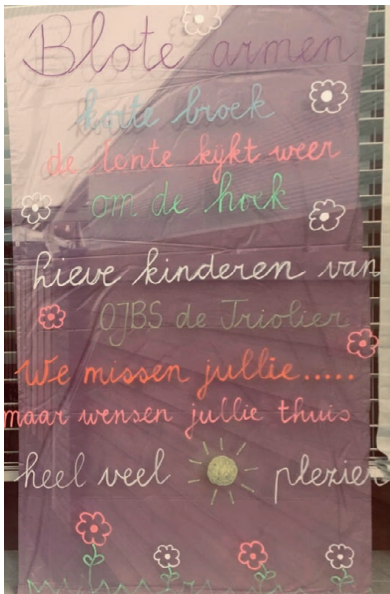 Blote armen
korte broek
de lente kijkt weer
om de hoek
lieve kinderen van
OJBS de Triolier
We missen jullie.....
maar wensen jullie thuis
heel veel plezier